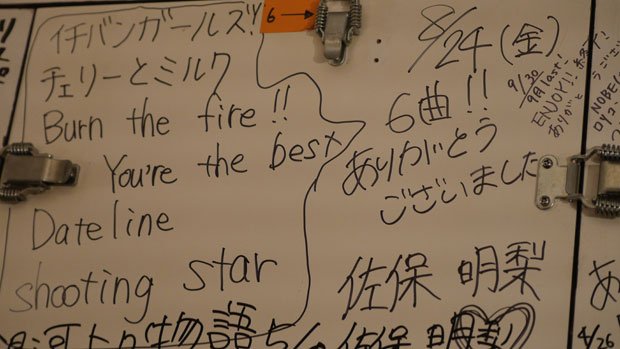 イチバンガールズ!
チェリーとミルク
Burn the fire!!
You're the best
Dateline
shooting star
6→
8/24(金)
6曲!!
ありがとう
ございました
佐保 明梨
9/30
9月last!
ENJOY!!
ありがと
NOBE
物語
佐保 明梨
あ
4/26